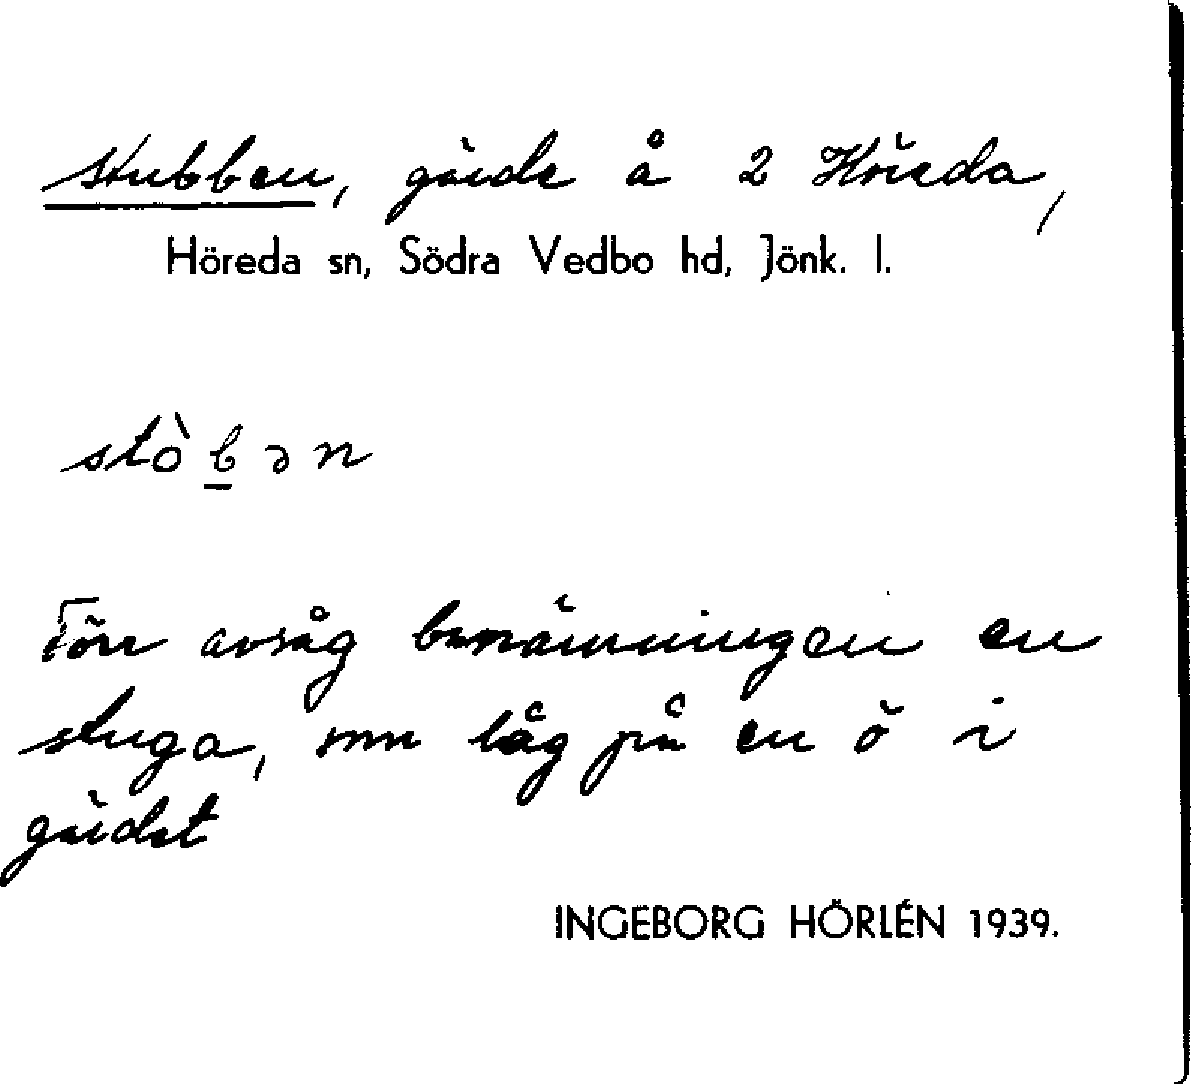 Stubben, gärde å 2 Höreda,
Höreda sn, Södra Vedbo hd, Jönk. l.
stòb̲ən
Förr avsåg benämningen en
stuga, som låg på en ö i
gärdet
INGEBORG HÖRLÉN 1939.